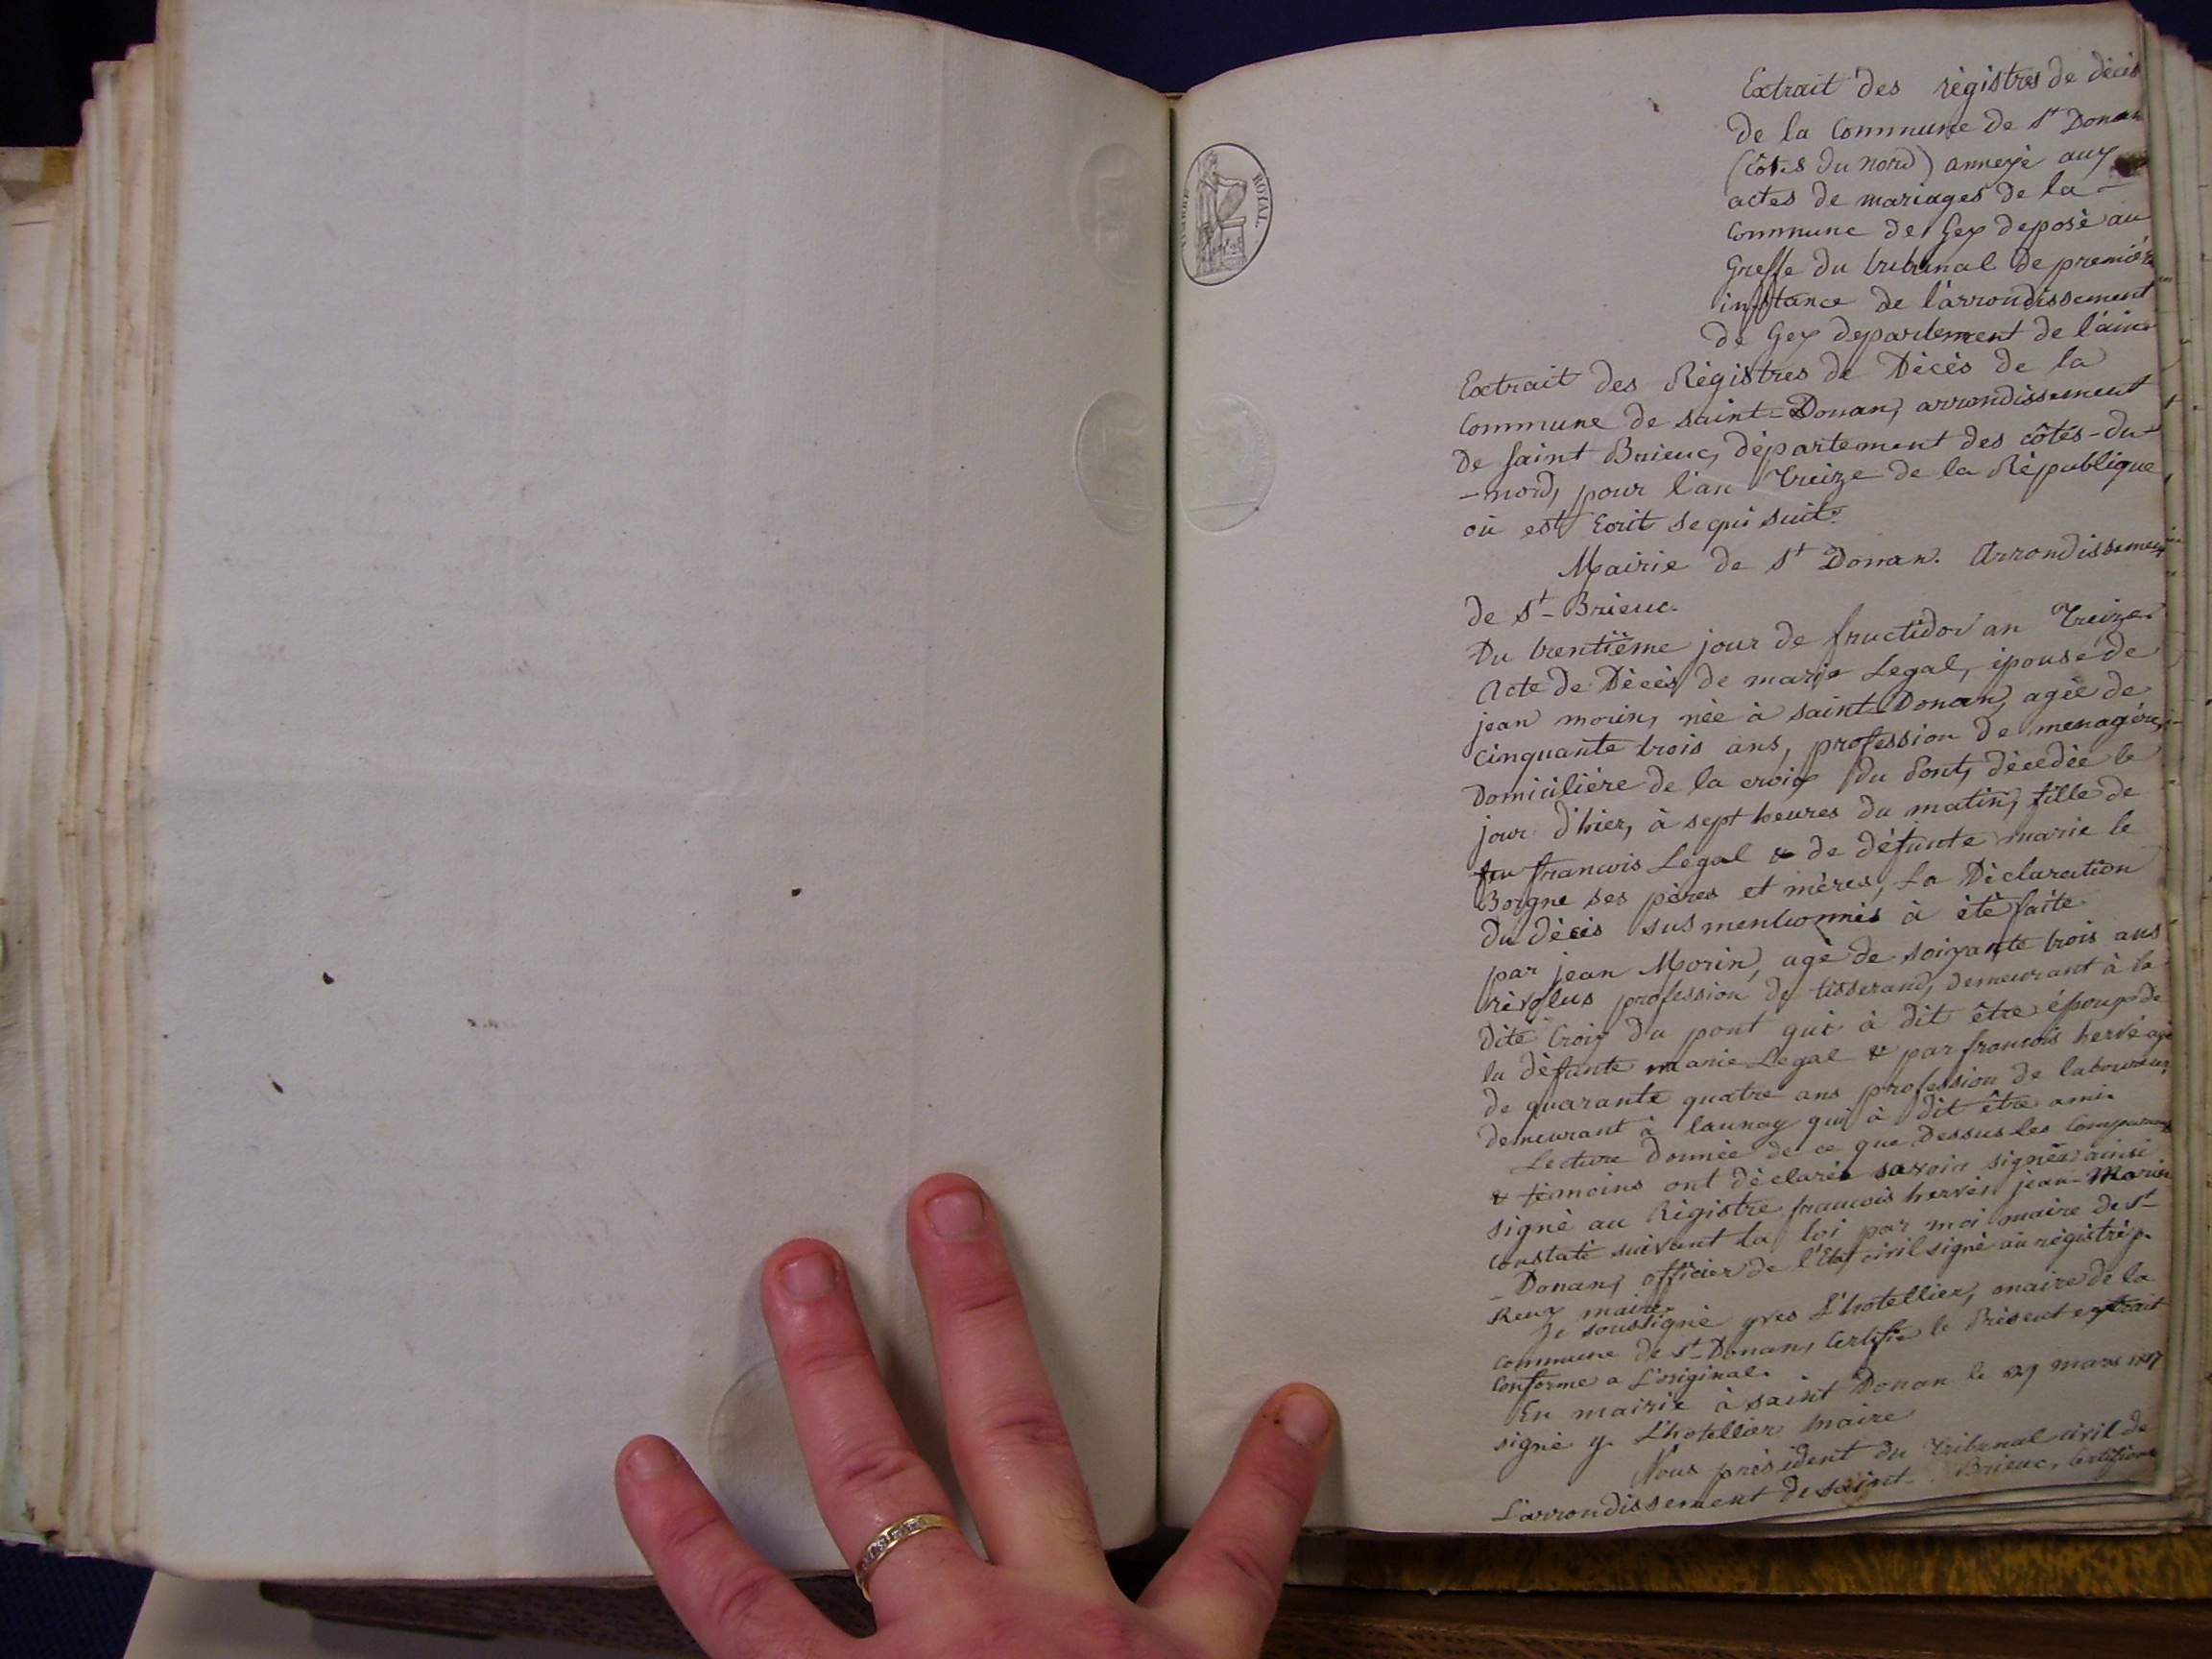 TIMBRE ROYAL
Extrait des régistres de décès
de la Commune de St Donan
(côtes du nord) annexé aux
actes de mariages de la -
Commune de Gex deposé au
Greffe du tribunal de premiére
instance de l'arrondissement
de Gex departement de l'ain
Extrait des Régistres de Décès de la
Commune de saint-Donan, arrondissement
de saint Brieuc, département des côtés-du-
-nord, pour l'an treize de la République
où est Ecrit se qui suit:
Mairie de St Donan. Arrondissement
de St-Brieuc.
Du trentième jour de fructidor an treize
Acte de Décès de marie Legal, épouse de
jean morin, née à saint-Donan, agée de
cinquante trois ans, profession de menagére,
Domiciliére de la croix du Pont, décedée le
jour d'hier, à sept heures du matin, fille de
feu francois Legal & de défunte marie le
Borgne ses péres et méres, La Déclaration
du décès susmentionnés à été faite
par jean Morin, agé de soixante trois ans
révolus profession de tisserand, demeurant à la
dite Croix du pont qui à dit être époux de
la défunte marie Legal & par francois hervé agé
de quarante quatre ans profession de laboureur,
demeurant à launay qui à dit être ami.
Lecture donnée de ce que dessus les comparants
& témoins ont déclarés savoir signer ainsi
signé au Régistre francois hervé, jean-Morin
constaté suivant la loi par moi maire de St-
- Donan, officier de l'Etat civil signé au régistre p.
Reux maire.
Je soussigné yves L'hotellier, maire de la
commune de St-Donan, Certifie le Présent extrait
conforme a L'original.
En mairie à saint Donan le 29 mars 1817
signé y. L'hotellier maire
Nous président du tribunal civil de
L'arrondissement de saint-Brieuc, Certifions